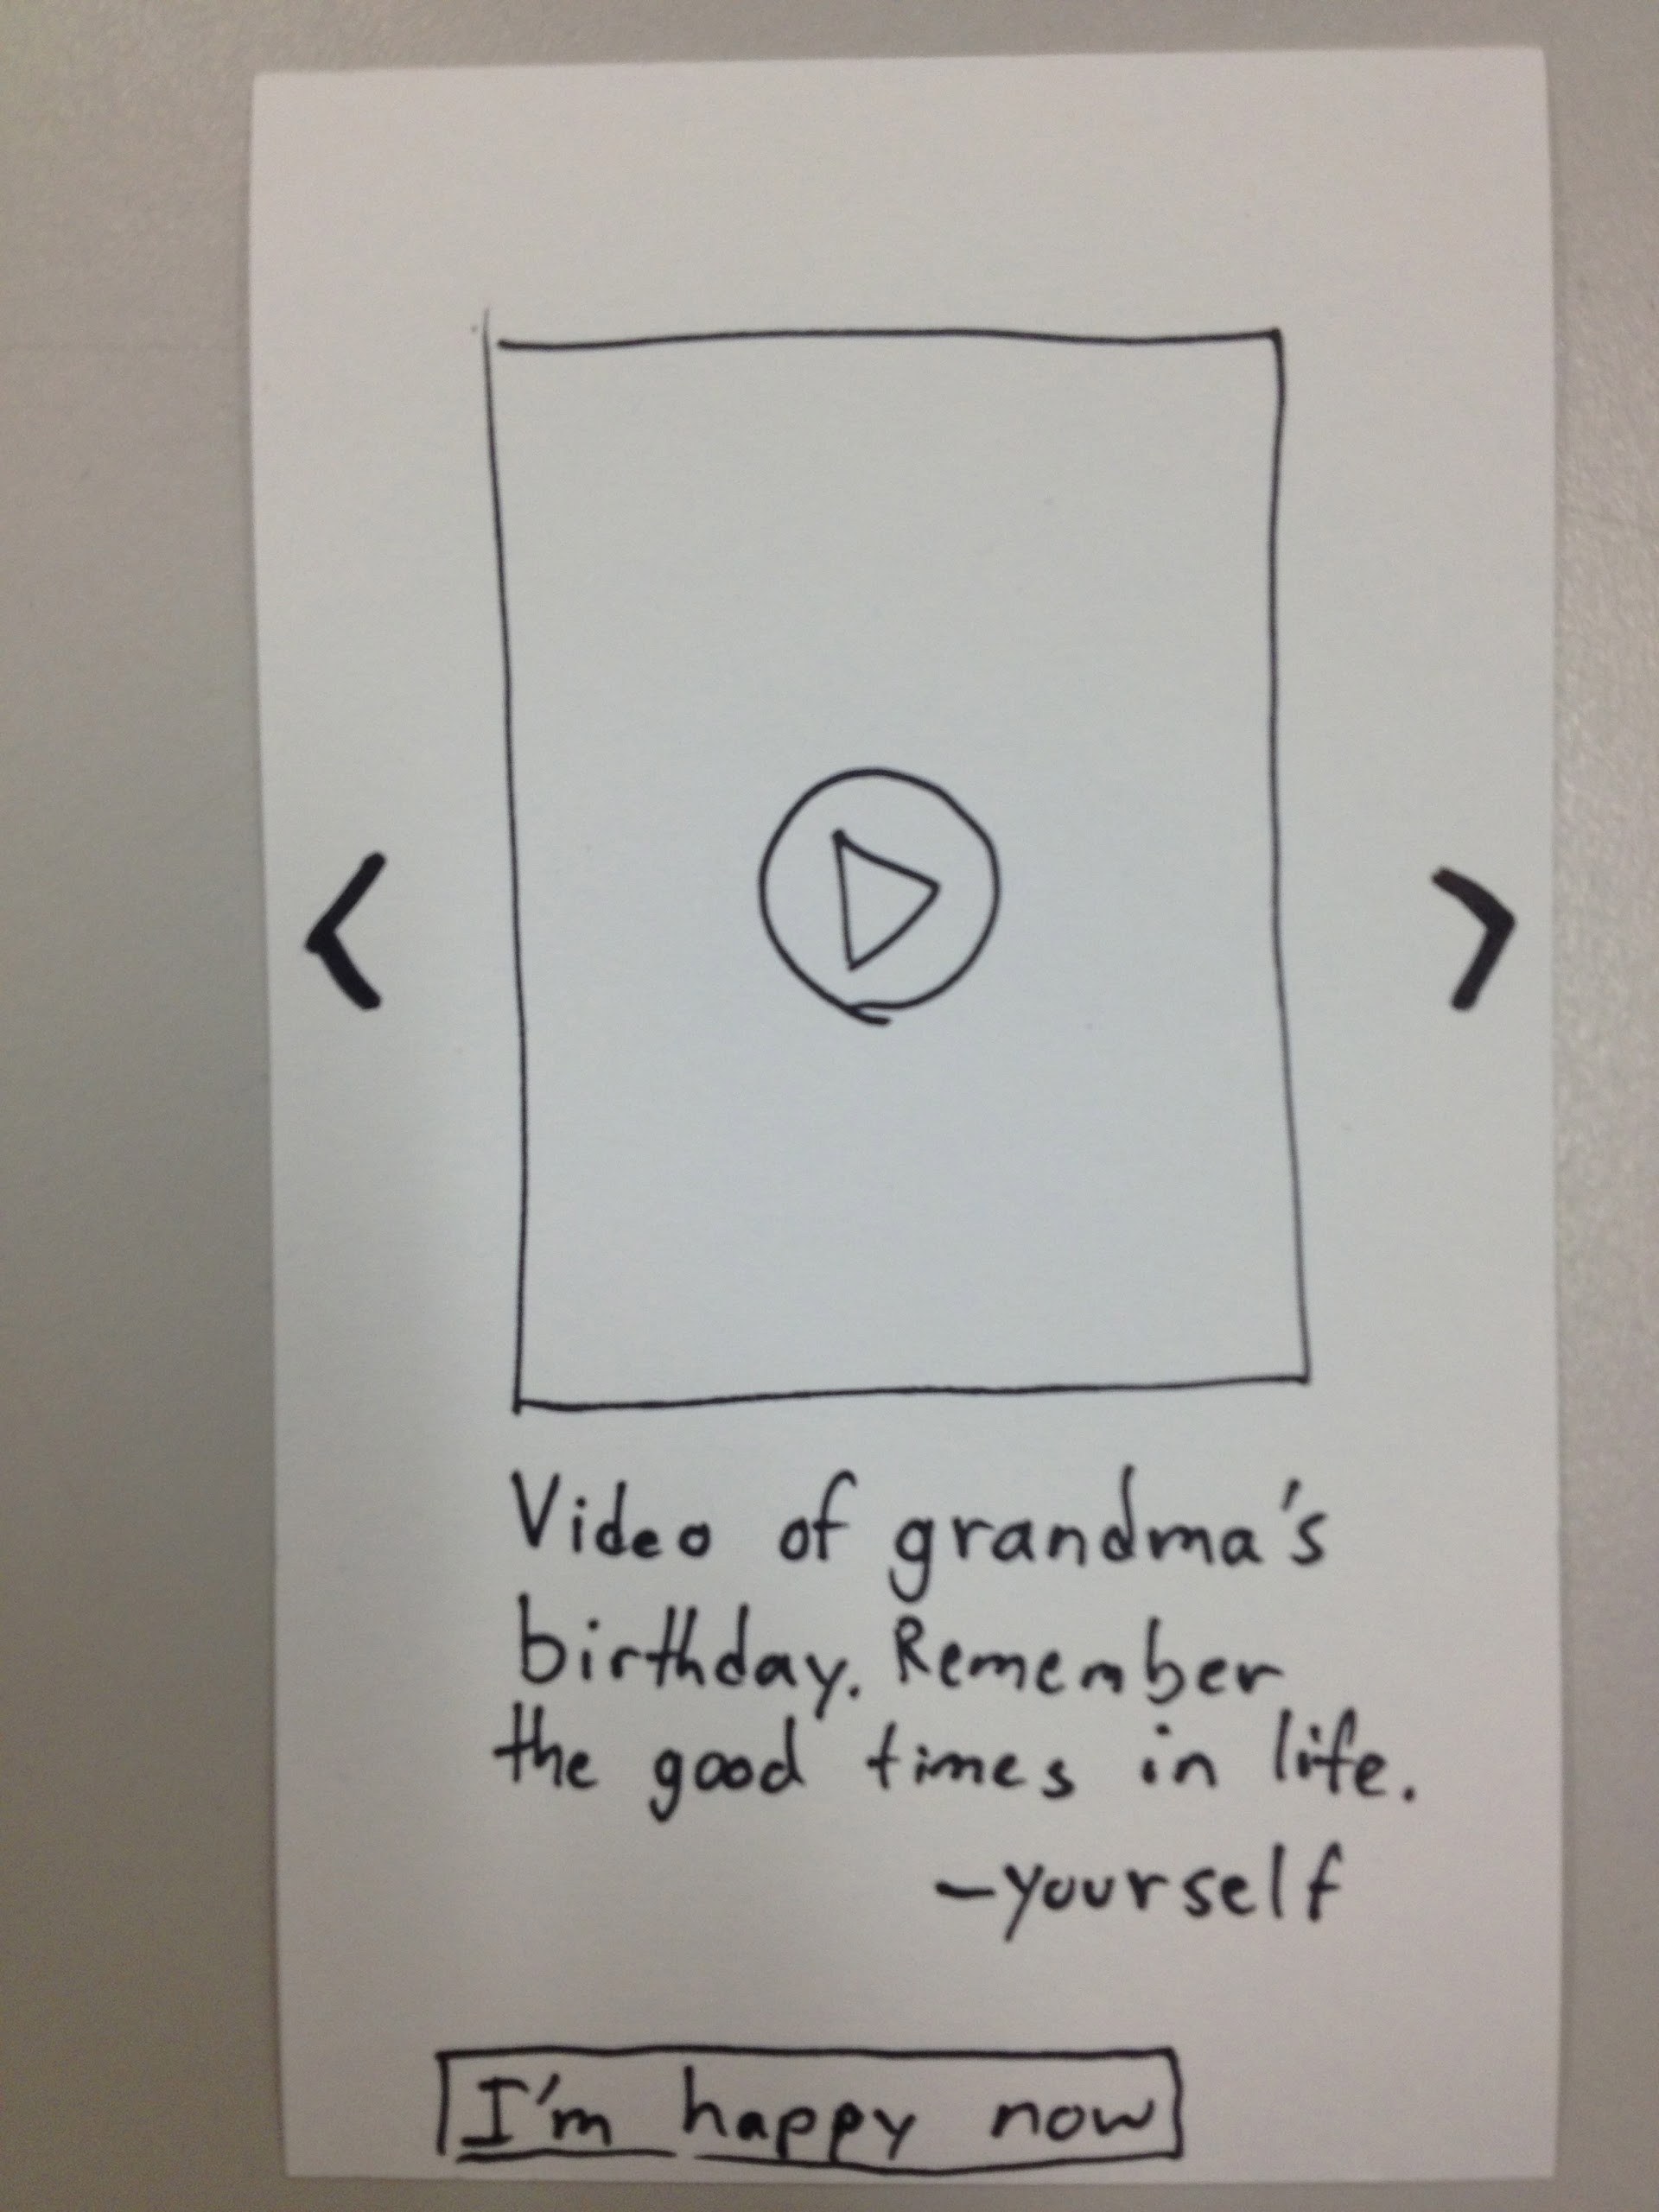 Video of grandma's
birthday. Remember
the good times in life.
-yourself
I'm happy now